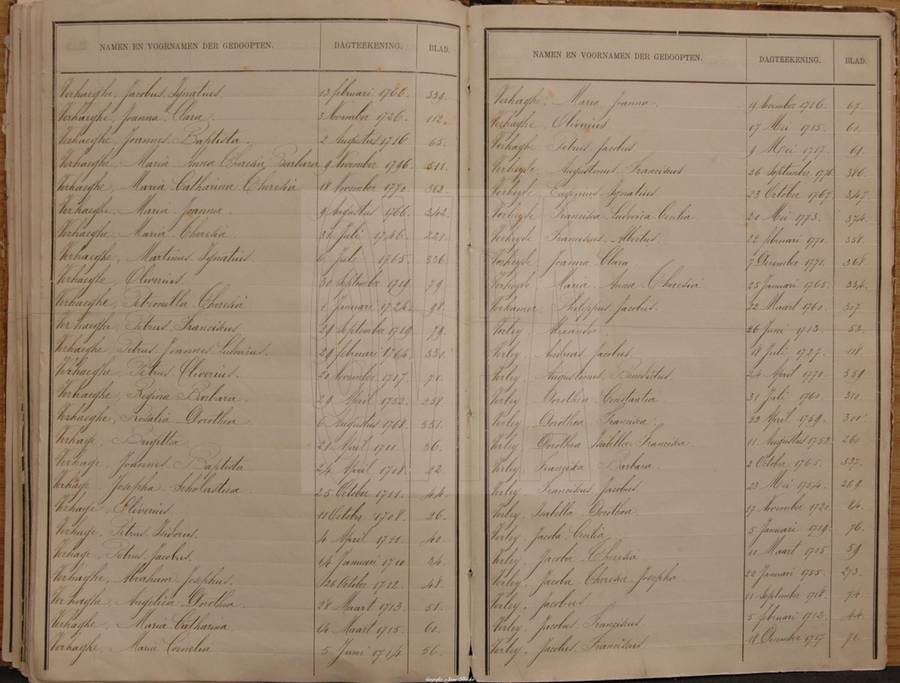 NAMEN EN VOORNAMEN DER GEDOOPTEN. DAGTEEKENING. BLAD.
Verhaeghe, Jacobus Ignatius 13 februari 1766. 339.
Verhaeghe, Joanna Clara. 3 November 1726. 112.
Verhaeghe, Joannes Baptista. 2 Augustus 1716 65.
Verhaeghe, Maria Anna Theresia Barbara 9 November 1746. 211.
Verhaeghe, Maria Catharina Theresia 18 November 1770. 363.
Verhaeghe, Maria Joanna. 9 Augustus 1766. 342.
Verhaeghe, Maria Theresia. Juli 1746. 221.
Verhaeghe, Martinus Ignatius. 6 Juli 1765. 336.
Verhaeghe, Oliverius. 30 September 1719. 79.
Verhaeghe, Petronilla Theresia 1 Januari 1724. 98.
Verhaeghe, Petrus Franciscus. 29 September 1719. 79.
Verhaeghe, Petrus Joannes Ludovicus. 29 februari 1764. 331.
Verhaeghe, Petrus Oliverius. 20 November 1717. 71.
Verhaeghe, Regina Barbara. 29 April 1752. 238.
Verhaeghe, Rosalia Dorothea 6 Augustus 1768. 351.
Verhage, Brigitta. 21 April 1711. 36.
Verhage, Joannes Baptista 24 April 1708. 22.
Verhage, Josepha Scholastica 25 October 1711. 44.
Verhage, Oliverius 11 October 1708. 26.
Verhage, Petrus Isidorus. 4 April 1711. 40.
Verhage, Petrus Jacobus. 14 Januari 1710 34.
Verhaghe, Abraham Josephus. 26 October 1712. 48.
Verhaghe, Angelina Dorothea 28 Maart 1713. 51.
Verhaghe, Maria Catharina 14 Maart 1715. 60.
Verhaghe, Maria Cornelia 5 Juni 1714 56.
NAMEN EN VOORNAMEN DER GEDOOPTEN. DAGTEEKENING. BLAD.
Verhaghe, Maria Joanna. 19 November 1716. 67.
Verhaghe, Oliverius 17 Mei 1715. 61.
Verhaghe, Petrus Jacobus 9 Mei 1717. 69.
Verheyde, Augustinus Franciscus 26 September 386.
Verheyde, Eugenius Ignatius 23 October 1767. 347.
Verheyde, Francisca Ludovica Cecilia 20 Mei 1773. 374.
Verheyde, Franciscus Albertus 22 februari 1770. 358.
Verheyde, Joanna Clara 7 December 1771. 368.
Verheyde, Maria Anna Theresia 25 Januari 1765. 334.
Verkamer, Philippus Jacobus. 22 Maart 1760. 307.
Verley, Alexander 26 Juni 1713. 52.
Verley, Andreas Jacobus. 18 Juli 1727. 118.
Verley, Augustinus Benedictus 24 April 1770. 359.
Verley, Dorothea Constantia 31 Juli 1760. 310.
Verley, Dorothea Francisca 22 April 1759. 300.
Verley, Dorothea Isabella Francisca 11 Augustus 1753 261.
Verley, Francisca Barbara. 2 October 1765. 337.
Verley, Franciscus Jacobus. 23 Mei 1754. 269.
Verley, Isabella Dorothea. 29 November 1720. 84.
Verley, Jacoba Cecilia 5 Januari 1719. 76.
Verley, Jacoba Theresia 11 Maart 1715. 59.
Verley, Jacoba Theresia Josepha 20 Januari 1755. 273.
Verley, Jacobus 11 September 1718. 74.
Verley, Jacobus Franciscus 5 februari 1712. 44.
Verley, Jacobus Franciscus 19 December 1717. 71.